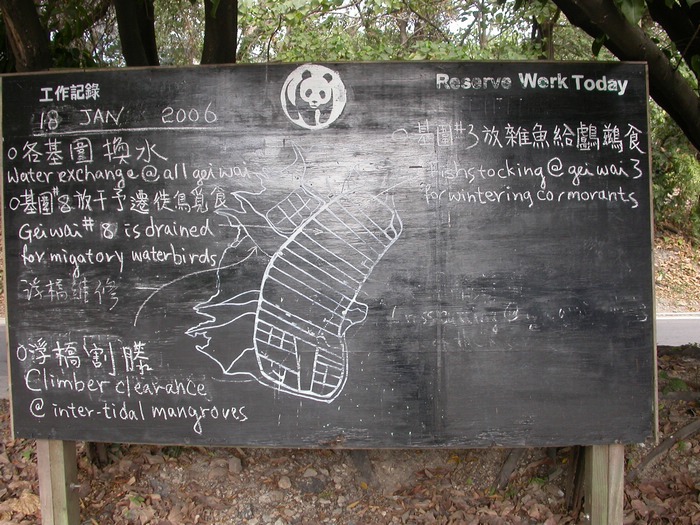 工作記錄
Reserve Work Today
18 JAN 2006
各基圍換水
water exchange @ all gei wai
基圍#8放干予遷徙鳥覓食
Gei wai # 8 is drained
for migatory waterbirds
浮橋維修
浮橋割藤
Climber clearance
@ inter-tidal mangroves
基圍#3放雜魚給鸕鶿食
fishstocking @ gei wai 3
for wintering cormorants